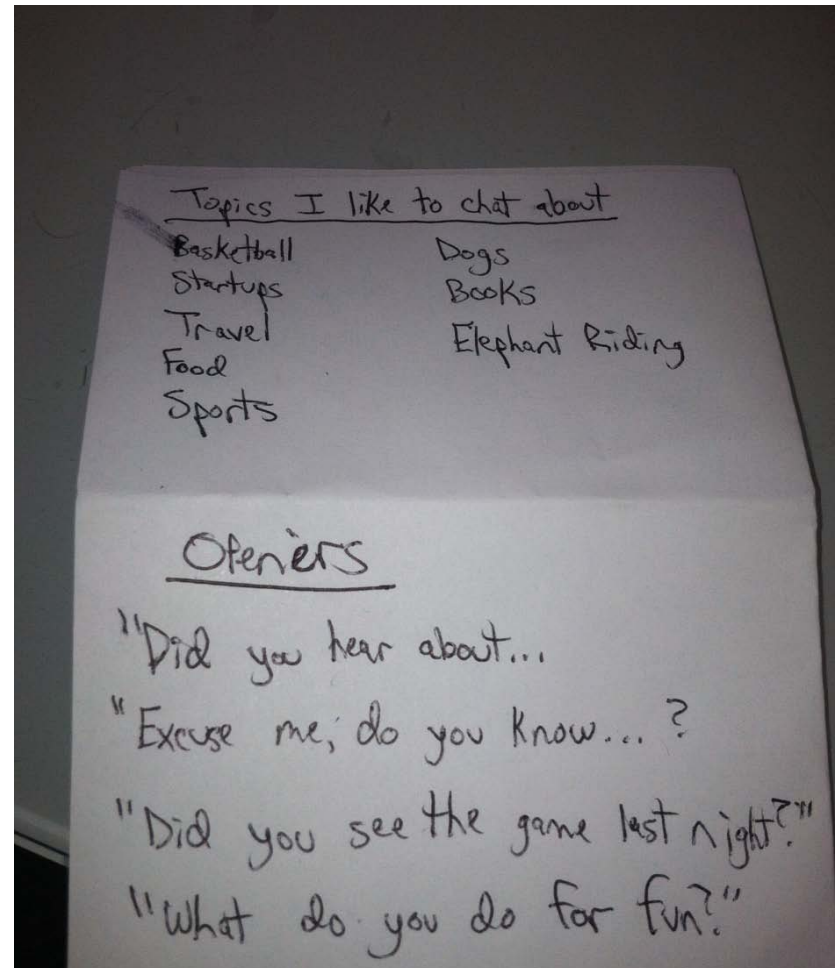 Topics I like to chat about
Basketball
Startups
Travel
Food
Sports
Dogs
Books
Elephant Riding
Openers
"Did you hear about...
"Excuse me, do you know...?
"Did you see the game last night?"
"What do you do for fun?"